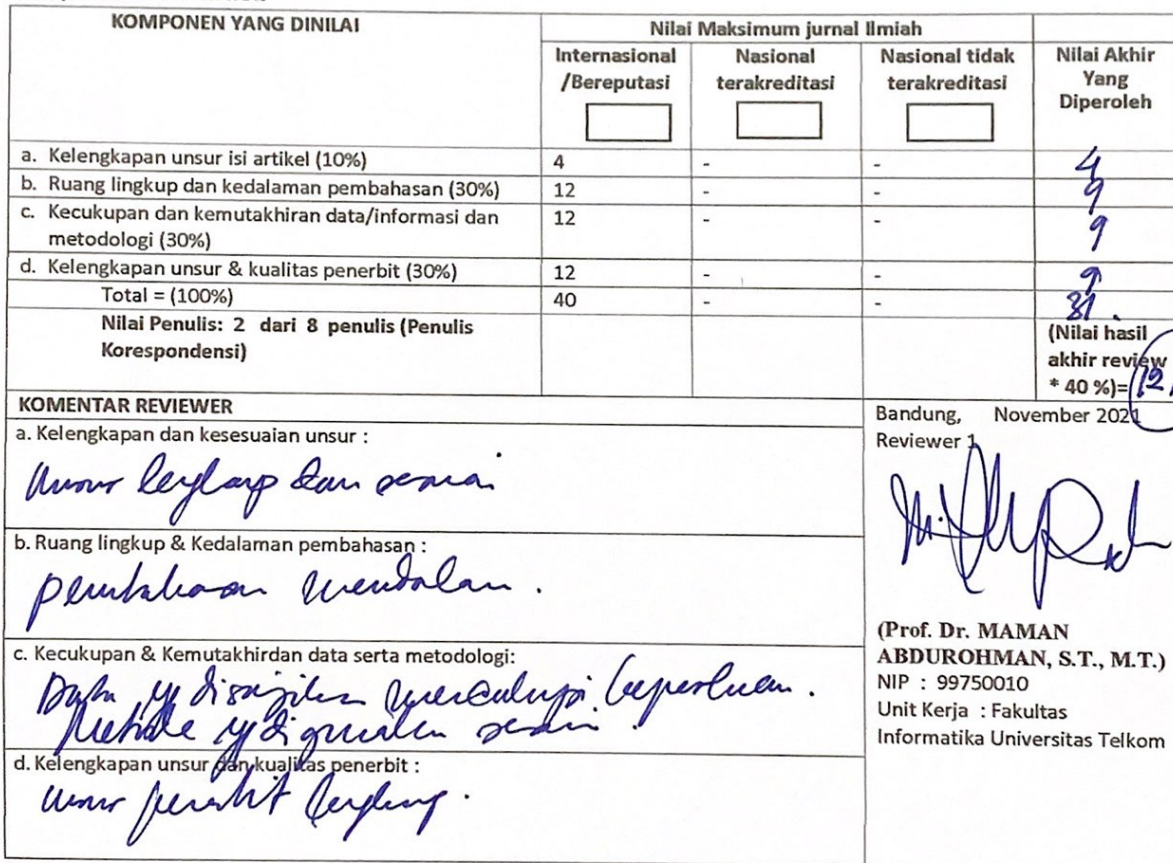 KOMPONEN YANG DINILAI
Nilai Maksimum jurnal Ilmiah
Internasional /Bereputasi
Nasional terakreditasi
Nasional tidak terakreditasi
Nilai Akhir Yang Diperoleh
a. Kelengkapan unsur isi artikel (10%) 4 - - 4
b. Ruang lingkup dan kedalaman pembahasan (30%) 12 - - 9
c. Kecukupan dan kemutakhiran data/informasi dan
metodologi (30%) 12 - - 9
d. Kelengkapan unsur & kualitas penerbit (30%) 12 - - 9
Total = (100%) 40 - - 31
Nilai Penulis: 2 dari 8 penulis (Penulis
Korespondensi)
(Nilai hasil
akhir review
* 40 %)=
KOMENTAR REVIEWER
a. Kelengkapan dan kesesuaian unsur :
unsur lengkap dan sesuai
b. Ruang lingkup & Kedalaman pembahasan :
pembahasan mendalam.
c. Kecukupan & Kemutakhirdan data serta metodologi:
Data yg disajikan mencukupi keperluan.
Metode yg digunakan sesuai.
d. Kelengkapan unsur dan kualitas penerbit :
unsur penerbit lengkap.
Bandung, November 2021
Reviewer 1
(Prof. Dr. MAMAN
ABDUROHMAN, S.T., M.T.)
NIP : 99750010
Unit Kerja : Fakultas
Informatika Universitas Telkom